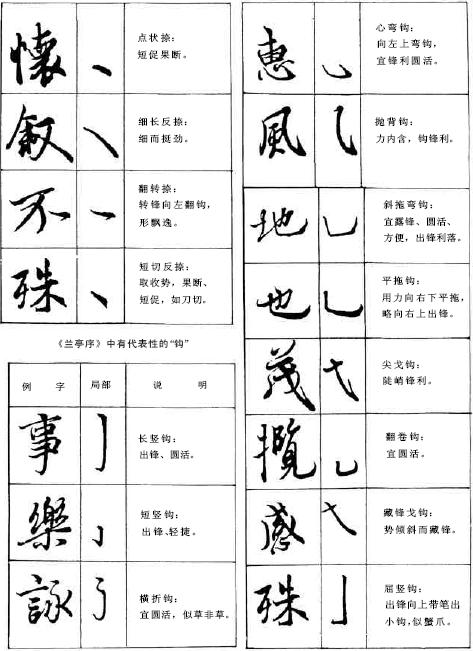 懷
点状捺：
短促果断。
敘
细长反捺：
细而挺劲。
不
翻转捺：
转锋向左翻钩，
形飘逸。
殊
短切反捺：
取收势，果断、
短促，如刀切。
《兰亭序》中有代表性的“钩”
例 字 局部 说 明
事
长竖钩：
出锋、圆活。
樂
短竖钩：
出锋、轻捷。
詠
横折钩：
宜圆活，似草非草。
惠
心弯钩：
向左上弯钩，
宜锋利圆活。
風
抛背钩：
力内含，钩锋利。
地
斜拖弯钩：
宜露锋、圆活、
方便，出锋利落。
也
平拖钩：
用力向右下平拖，
略向右上出锋。
茂
尖戈钩：
陡峭锋利。
攬
翻卷钩：
宜圆活。
感
藏锋戈钩：
势倾斜而藏锋。
殊
屈竖钩：
出锋向上带笔出
小钩，似蟹爪。